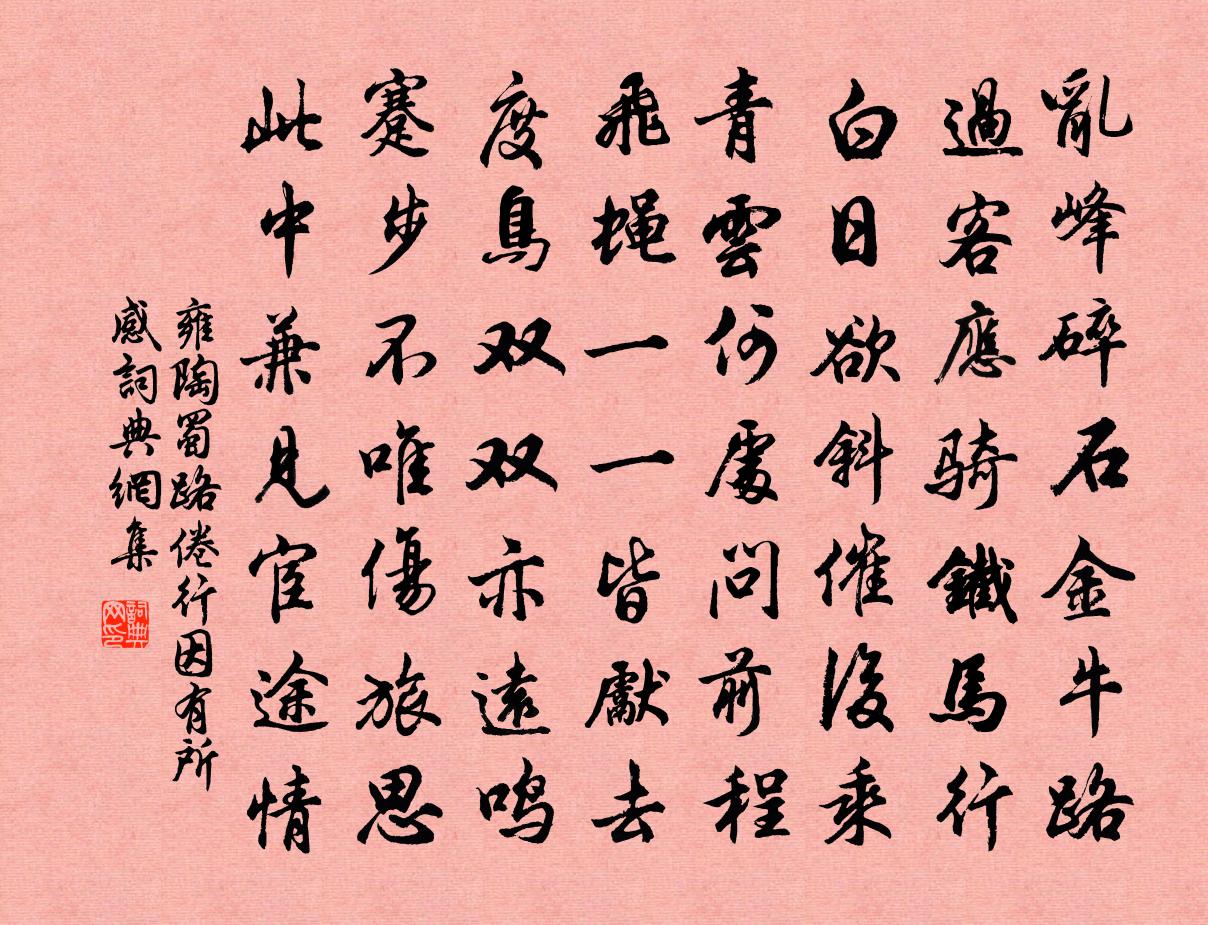 亂峰碎石金牛路
過客應騎鐵馬行
白日欲斜催後乘
青雲何處問前程
飛蝇一一皆獻去
度鳥双双亦遠鸣
蹇步不唯傷旅思
此中兼見宦途情
雍陶蜀路倦行因有所
感詞典網集
詞典
网印